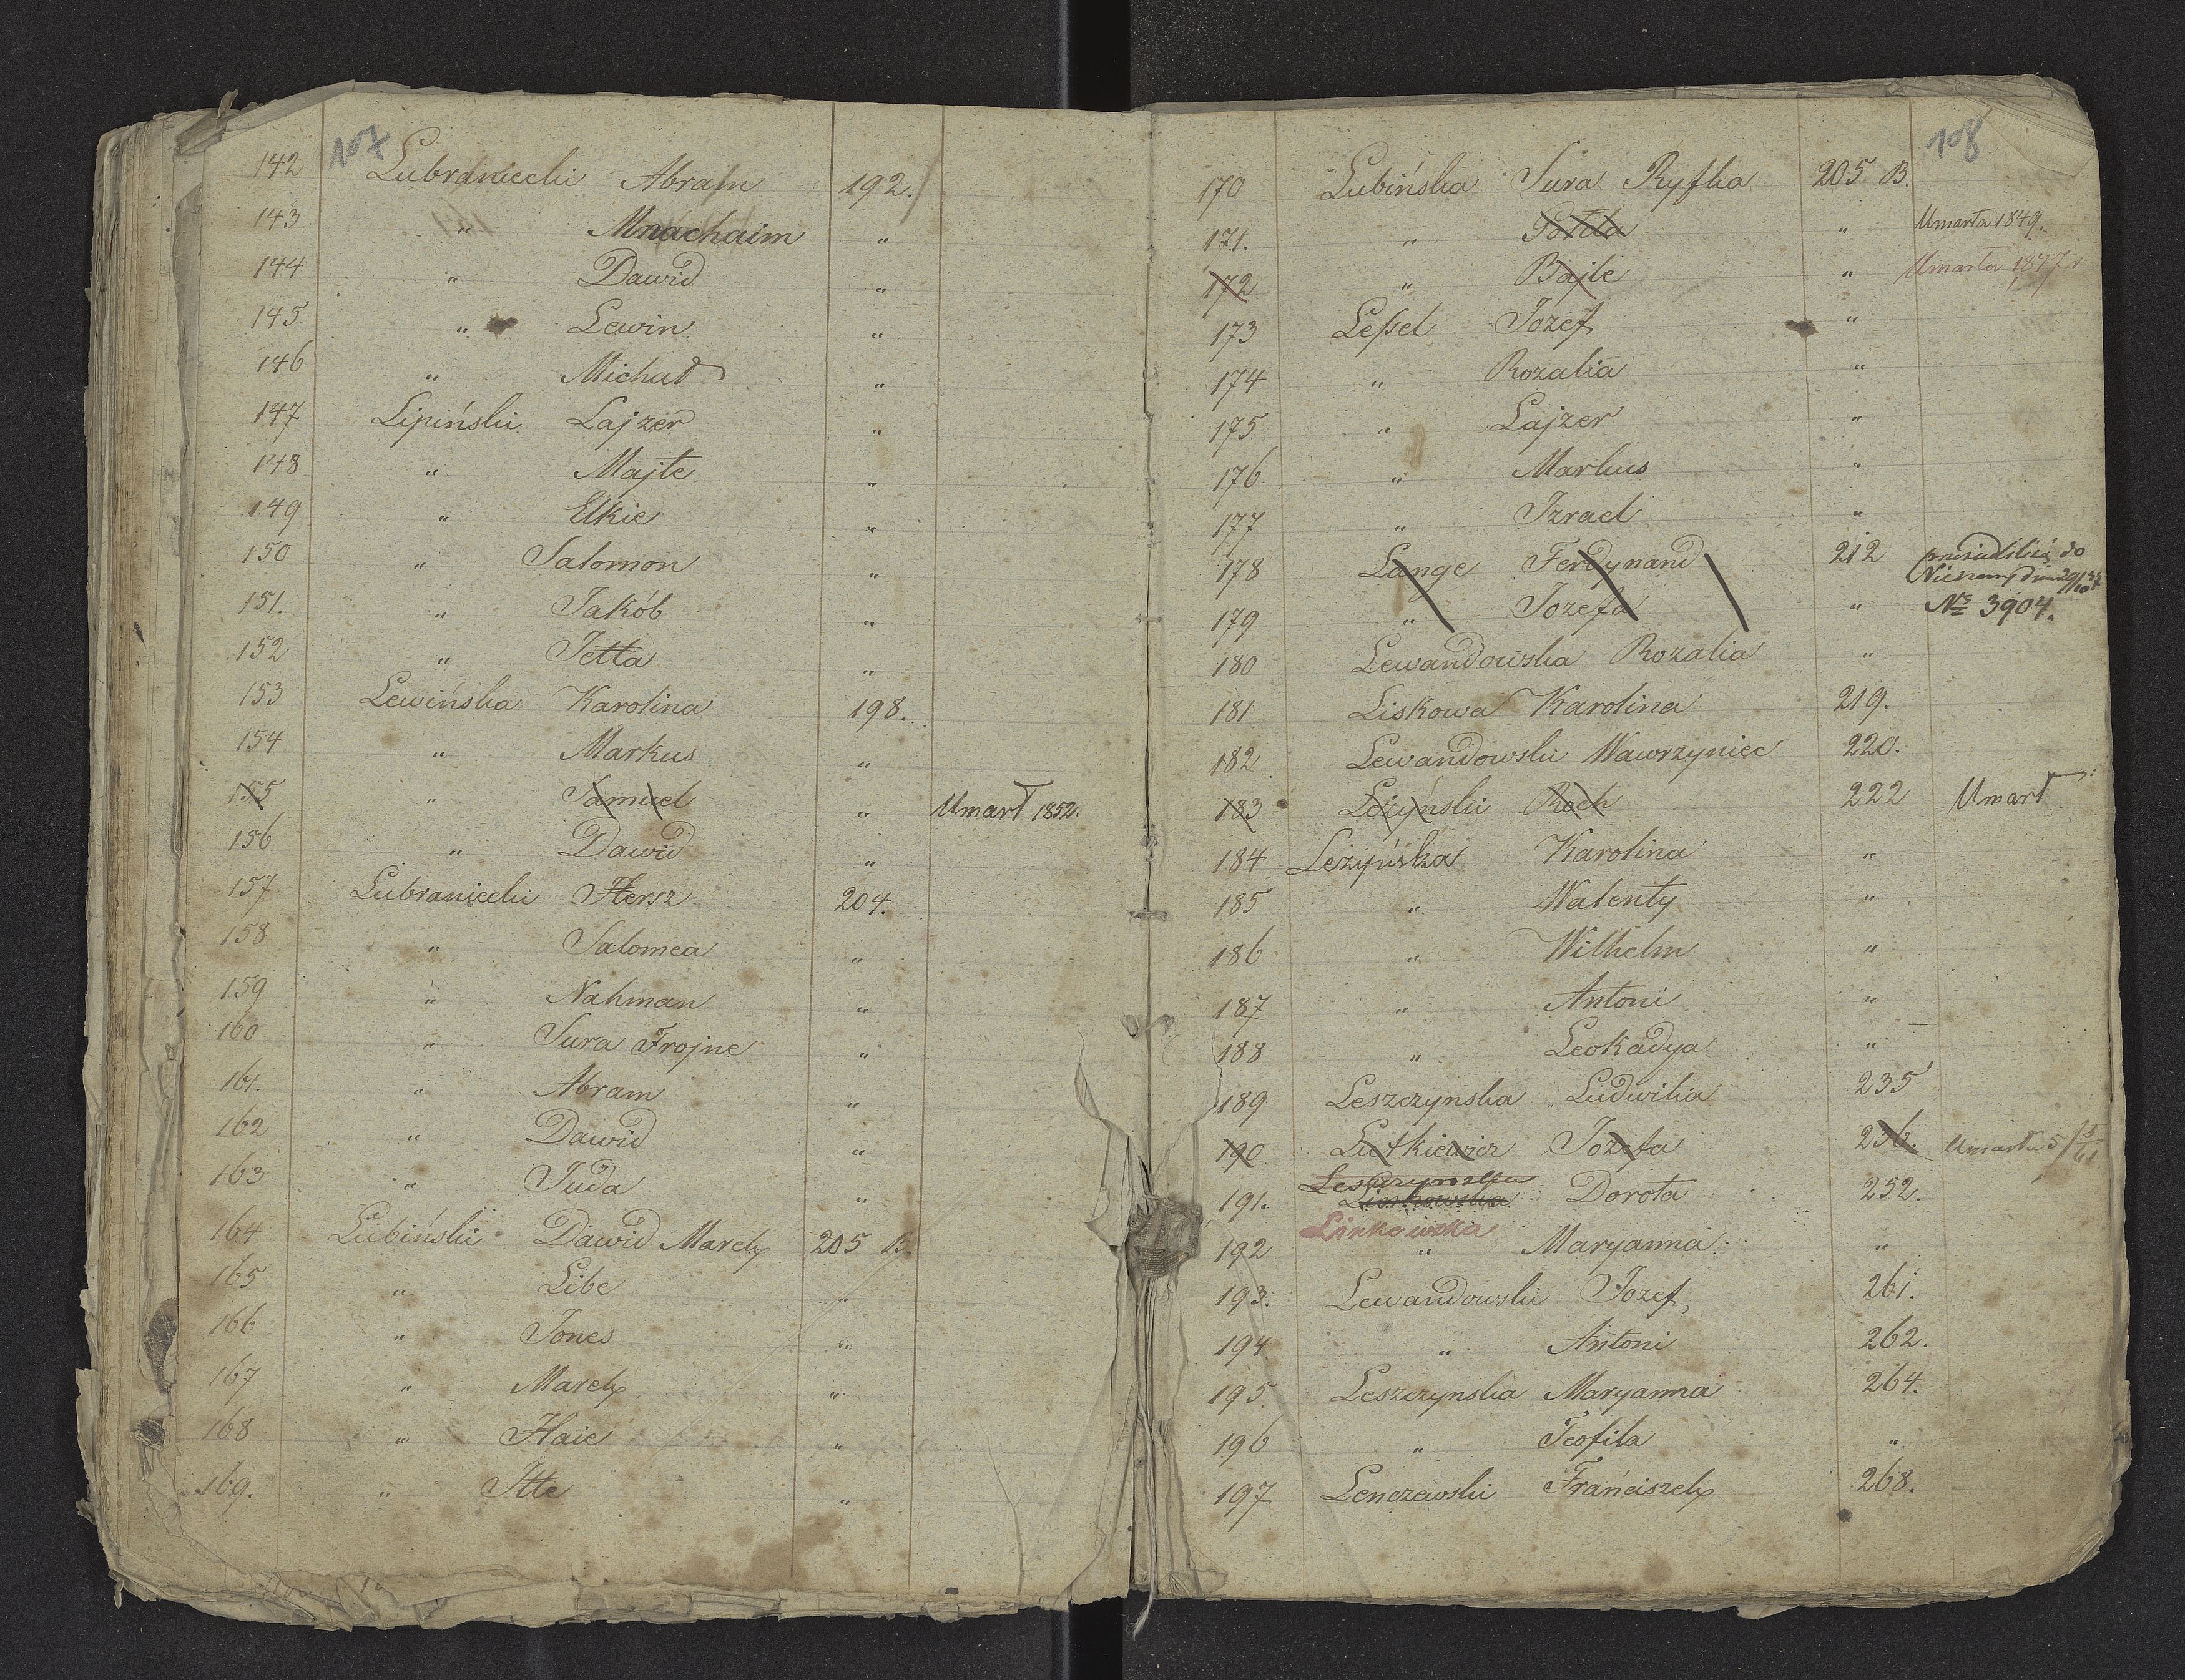 107
142 Lubraniecki Abram 192.
143 " Mnachaim "
144 " Dawid "
145 " Lewin "
146 " Michał "
147 Lipiński Lajzer "
148 " Majte "
149 " Elkie "
150 " Salomon "
151. " Jakób "
152 " Jetta "
153 Lewińska Karolina 198.
154 " Markus "
155 " Samuel " Umarł 1852.
156 " Dawid "
157 Lubraniecki Hersz 204.
158 " Salomea "
159 " Nahman "
160 " Sura Frojne "
161. " Abram "
162 " Dawid "
163 " Juda "
164 Lubiński Dawid Marek 205 B.
165 " Libe "
166 " Jones "
167 " Marek "
168 " Haie "
169. " Itte "
108
170 Lubińska Sura Ryfka 205 B.
171. " Gołda " Umarła 1849.
172 " Bajle " Umarła 1847 r
173 Leſsel Jozef "
174 " Rozalia "
175 " Lajzer "
176 " Markus "
177 " Izrael "
178 Lange Ferdynand 212 do
179 " Jozefa " No 3904.
180 Lewandowska Rozalia "
181 Liskowa Karolina 219.
182 Lewandowski Wawrzyniec 220.
183 Leżyński Roch 222 Umarł
184 Leżyńska Karolina "
185 " Walenty "
186 " Wilhelm "
187 " Antoni "
188 " Leokadya "
189 Leszczynska Ludwika 235
190 Lutkiewicz Jozefa 236. Umarła 5/3 61
Leszczynska
191. Linkowska Dorota 252.
Linkowska
192 " Maryanna "
193. Lewandowski Jozef, 261.
194 " Antoni 262.
195. Leszczynska Maryanna 264.
196 " Teofila "
197 Lenczewski Franciszek 268.